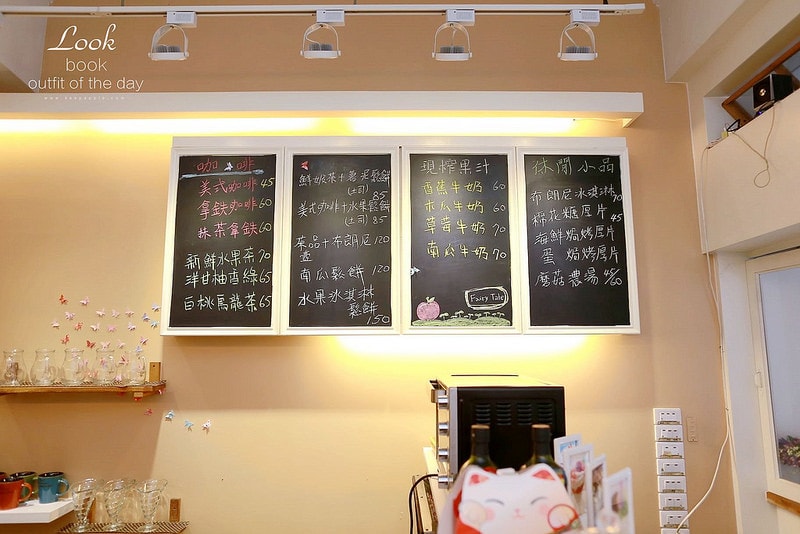 Look
book
outfit of the day
咖啡
美式咖啡 45
拿鉄咖啡 60
抹茶拿鉄 60
新鮮水果茶 70
洋甘柚香綠 65
白桃烏龍茶 65
鮮奶茶+鬆餅
(土司) 85
美式咖啡+水果鬆餅
(土司) 85
茶品+布朗尼 120
壺
南瓜鬆餅 120
水果冰淇淋
鬆餅
150
現榨果汁
香蕉牛奶 60
木瓜牛奶 60
草莓牛奶 70
南瓜牛奶 70
Fairy Tale
休閒小品
布朗尼冰淇淋 70
棉花糖厚片 45
海鮮焗烤厚片
蛋 焗烤厚片
蘑菇濃湯 45/60